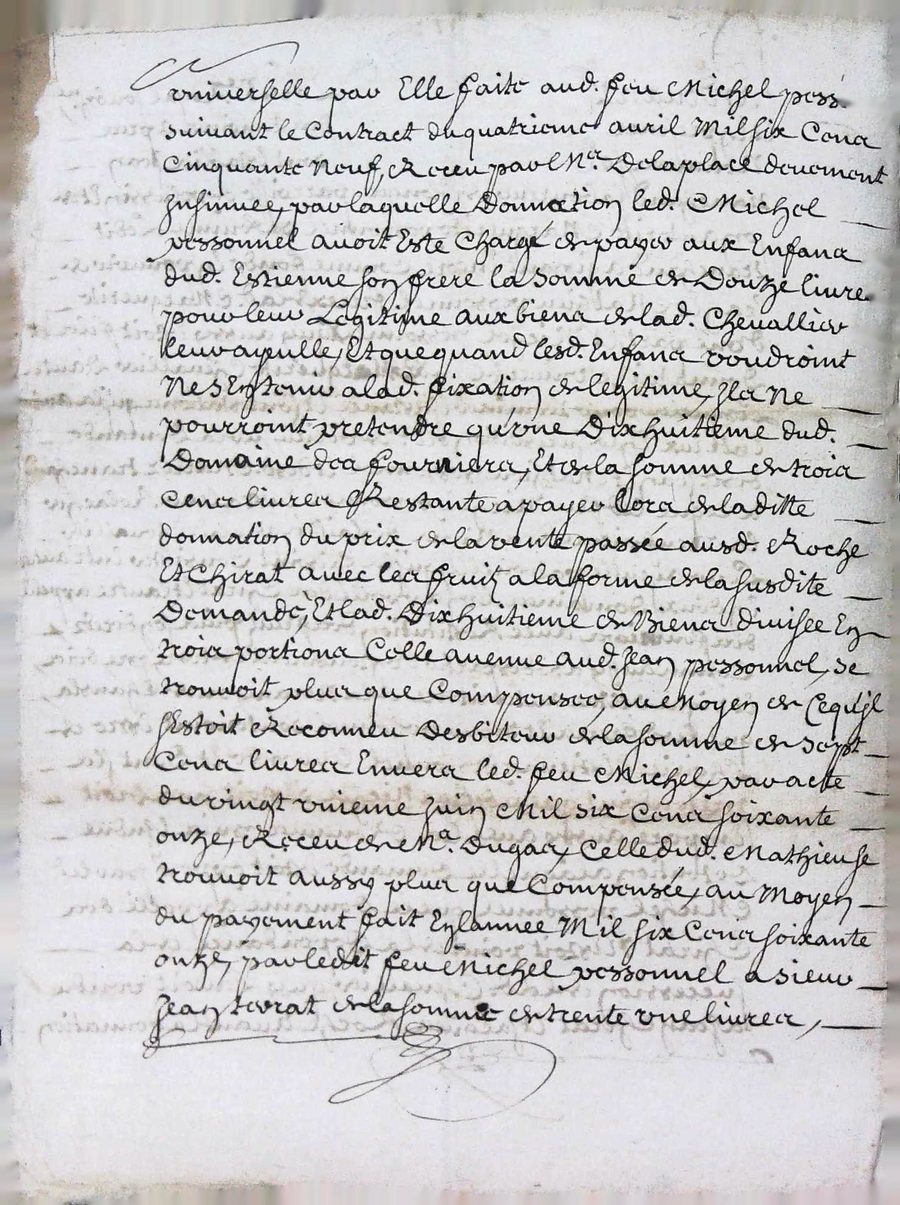 universelle par Elle faite aud. feu Michel pess.
suivant le Contract du quatrieme avril Mil six Cens
Cinquante Neuf, Receu par Me. Delaplace deuement
Insinuée, par laquelle Donnation led. Michel
pessonnel avoit Esté Chargé de payer aux Enfans
dud. Estienne son frere la Somme de Douze livre
pour leur Legitime aux biens de lad. Chevallier
leur ayeulle, Et que quand lesd. Enfans voudroint
Ne s'En tenir a lad. fixation de legitime, Ils Ne
pourroint pretendre qu'une Dixhuitieme dud.
Domaine des fourniers, Et de la somme de trois
Cens livres Restante a payer lors de laditte
donnation du prix de la vente passée ausd. Roche
Et Chirat avec les fruitz a la forme de la susdite
Demande, Et lad. Dixhuitieme de Biens divisee En
trois portions Celle avenue aud. Jean pessonnel, se
trouvoit plus que Compensee, au Moyen de Ce qu'il
s'Estoit Reconneu Desbiteur de la somme de Sept
Cens livres Envers led. feu Michel, par acte
du vingt unieme Juin Mil six Cens soixante
onze, Receu de Me. Dugas, Celle dud. Mathieu se
trouvoit aussy plus que Compensée, au Moyen
du payement fait En l'annee Mil six Cens soixante
onze, par ledit feu Michel pessonnel a Sieur
Jean terrat de la somme de trente une livres,